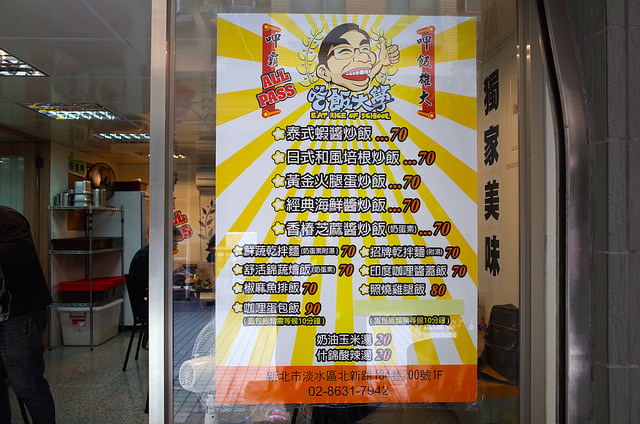 呷霸
ALL PASS
呷飯雄大
吃飯大學
EAT RICE OF SCHOOL
泰式蝦醬炒飯...70
日式和風培根炒飯...70
黃金火腿蛋炒飯...70
經典海鮮醬炒飯...70
香椿芝麻醬炒飯(奶蛋素)...70
鮮蔬乾拌麵(奶蛋素附湯) 70
招牌乾拌麵(附湯) 70
舒活錦蔬燴飯(奶蛋素) 70
印度咖哩醬蓋飯 70
椒麻魚排飯 70
照燒雞腿飯 80
咖哩蛋包飯 90
(蛋包飯類需等候10分鐘)
(蛋包飯類需等候10分鐘)
奶油玉米湯 20
什錦酸辣湯 20
新北市淡水區北新路184巷200號1F
02-8631-7942
獨家美味